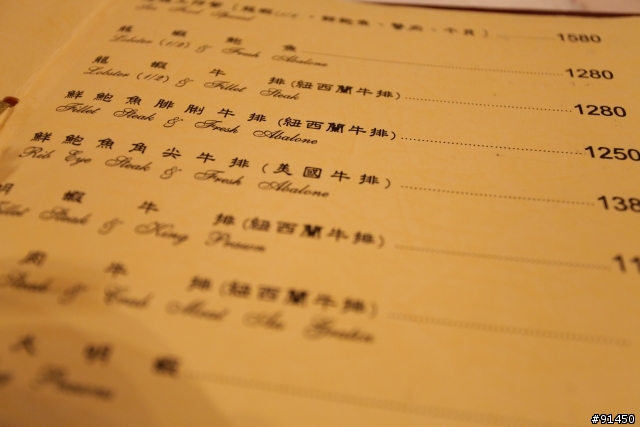 (龍蝦1/2、鮮鮑魚、
Sea Food Special 1580
龍蝦鮑魚 1280
Lobster (1/2) & Fresh Abalone
龍蝦牛排(紐西蘭牛排) 1280
Lobster (1/2) & Fillet Steak
鮮鮑魚腓利牛排(紐西蘭牛排) 1250
Fillet Steak & Fresh Abalone
鮮鮑魚角尖牛排(美國牛排) 138
Rib Eye Steak & Fresh Abalone
明蝦牛排(紐西蘭牛排) 11
Fillet Steak & King Prawn
肉牛排(紐西蘭牛排)
Steak & Crab Meat Au Gratin
大明蝦
Prawns
#91450